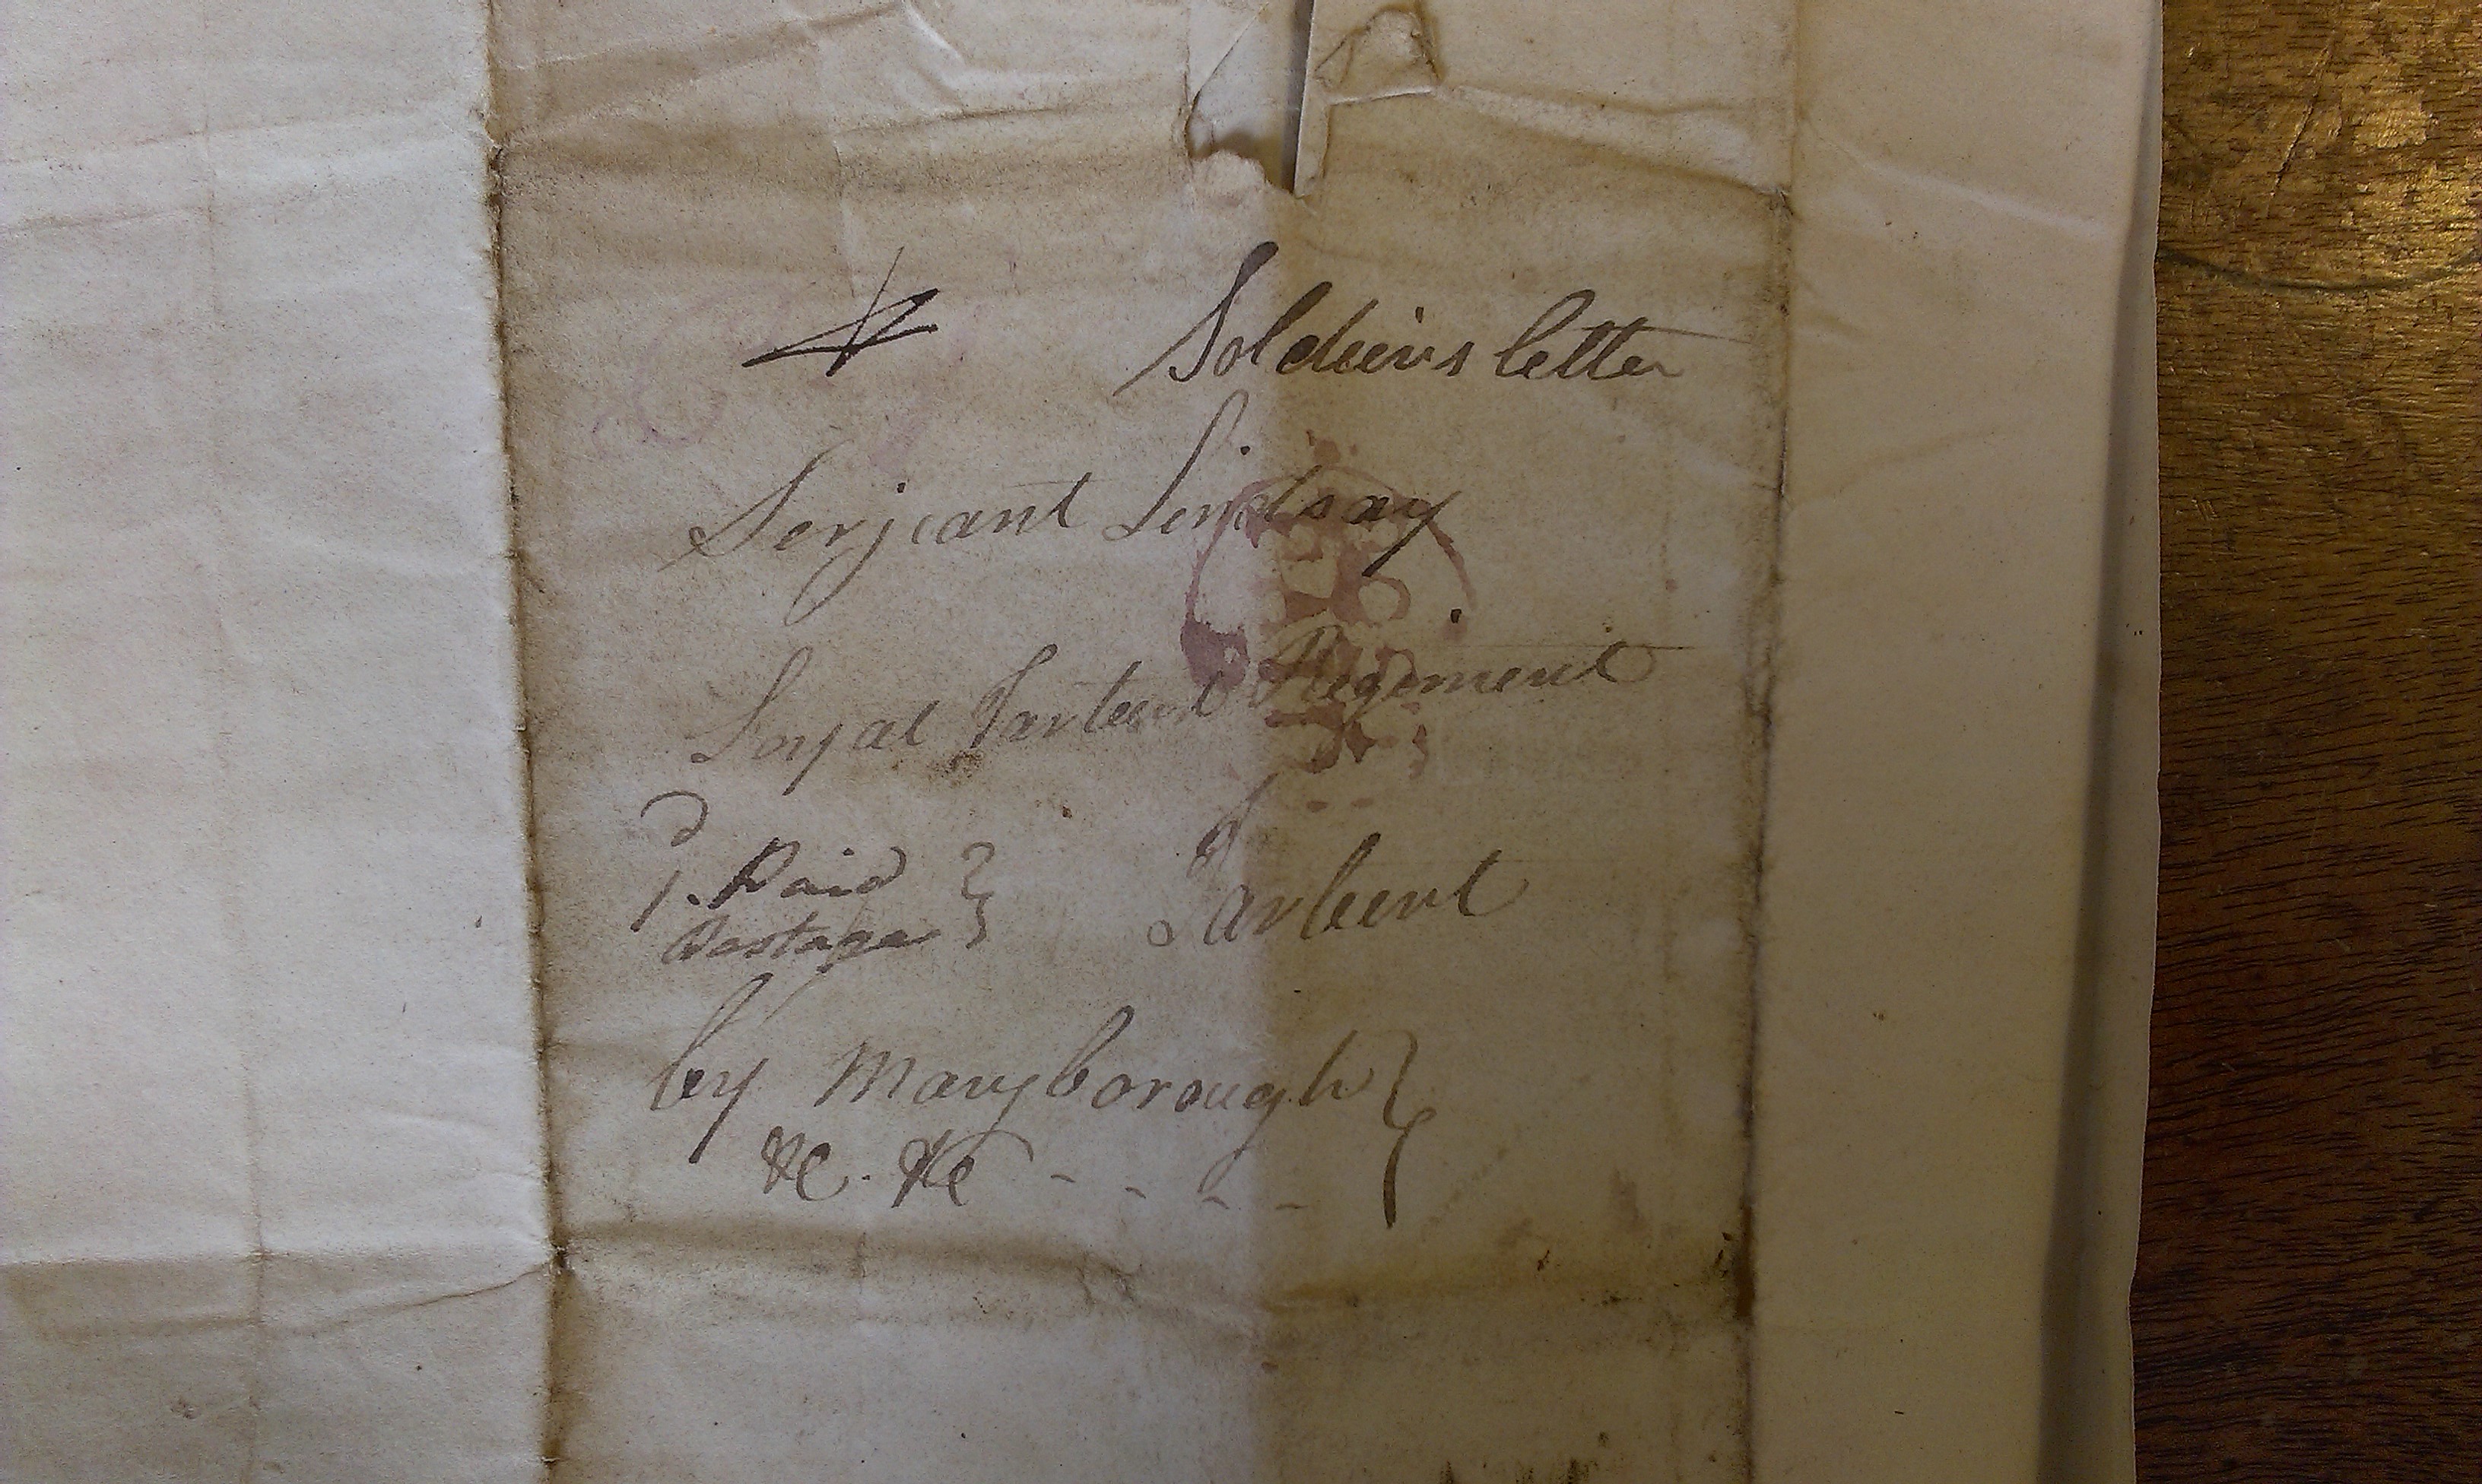 Soldiers letter
Serjeant Lindsay
Loyal Tarbert Regiment
d
1. Paid
Postage }
Tarbert
by Maryborough }
&c. &c - - - -